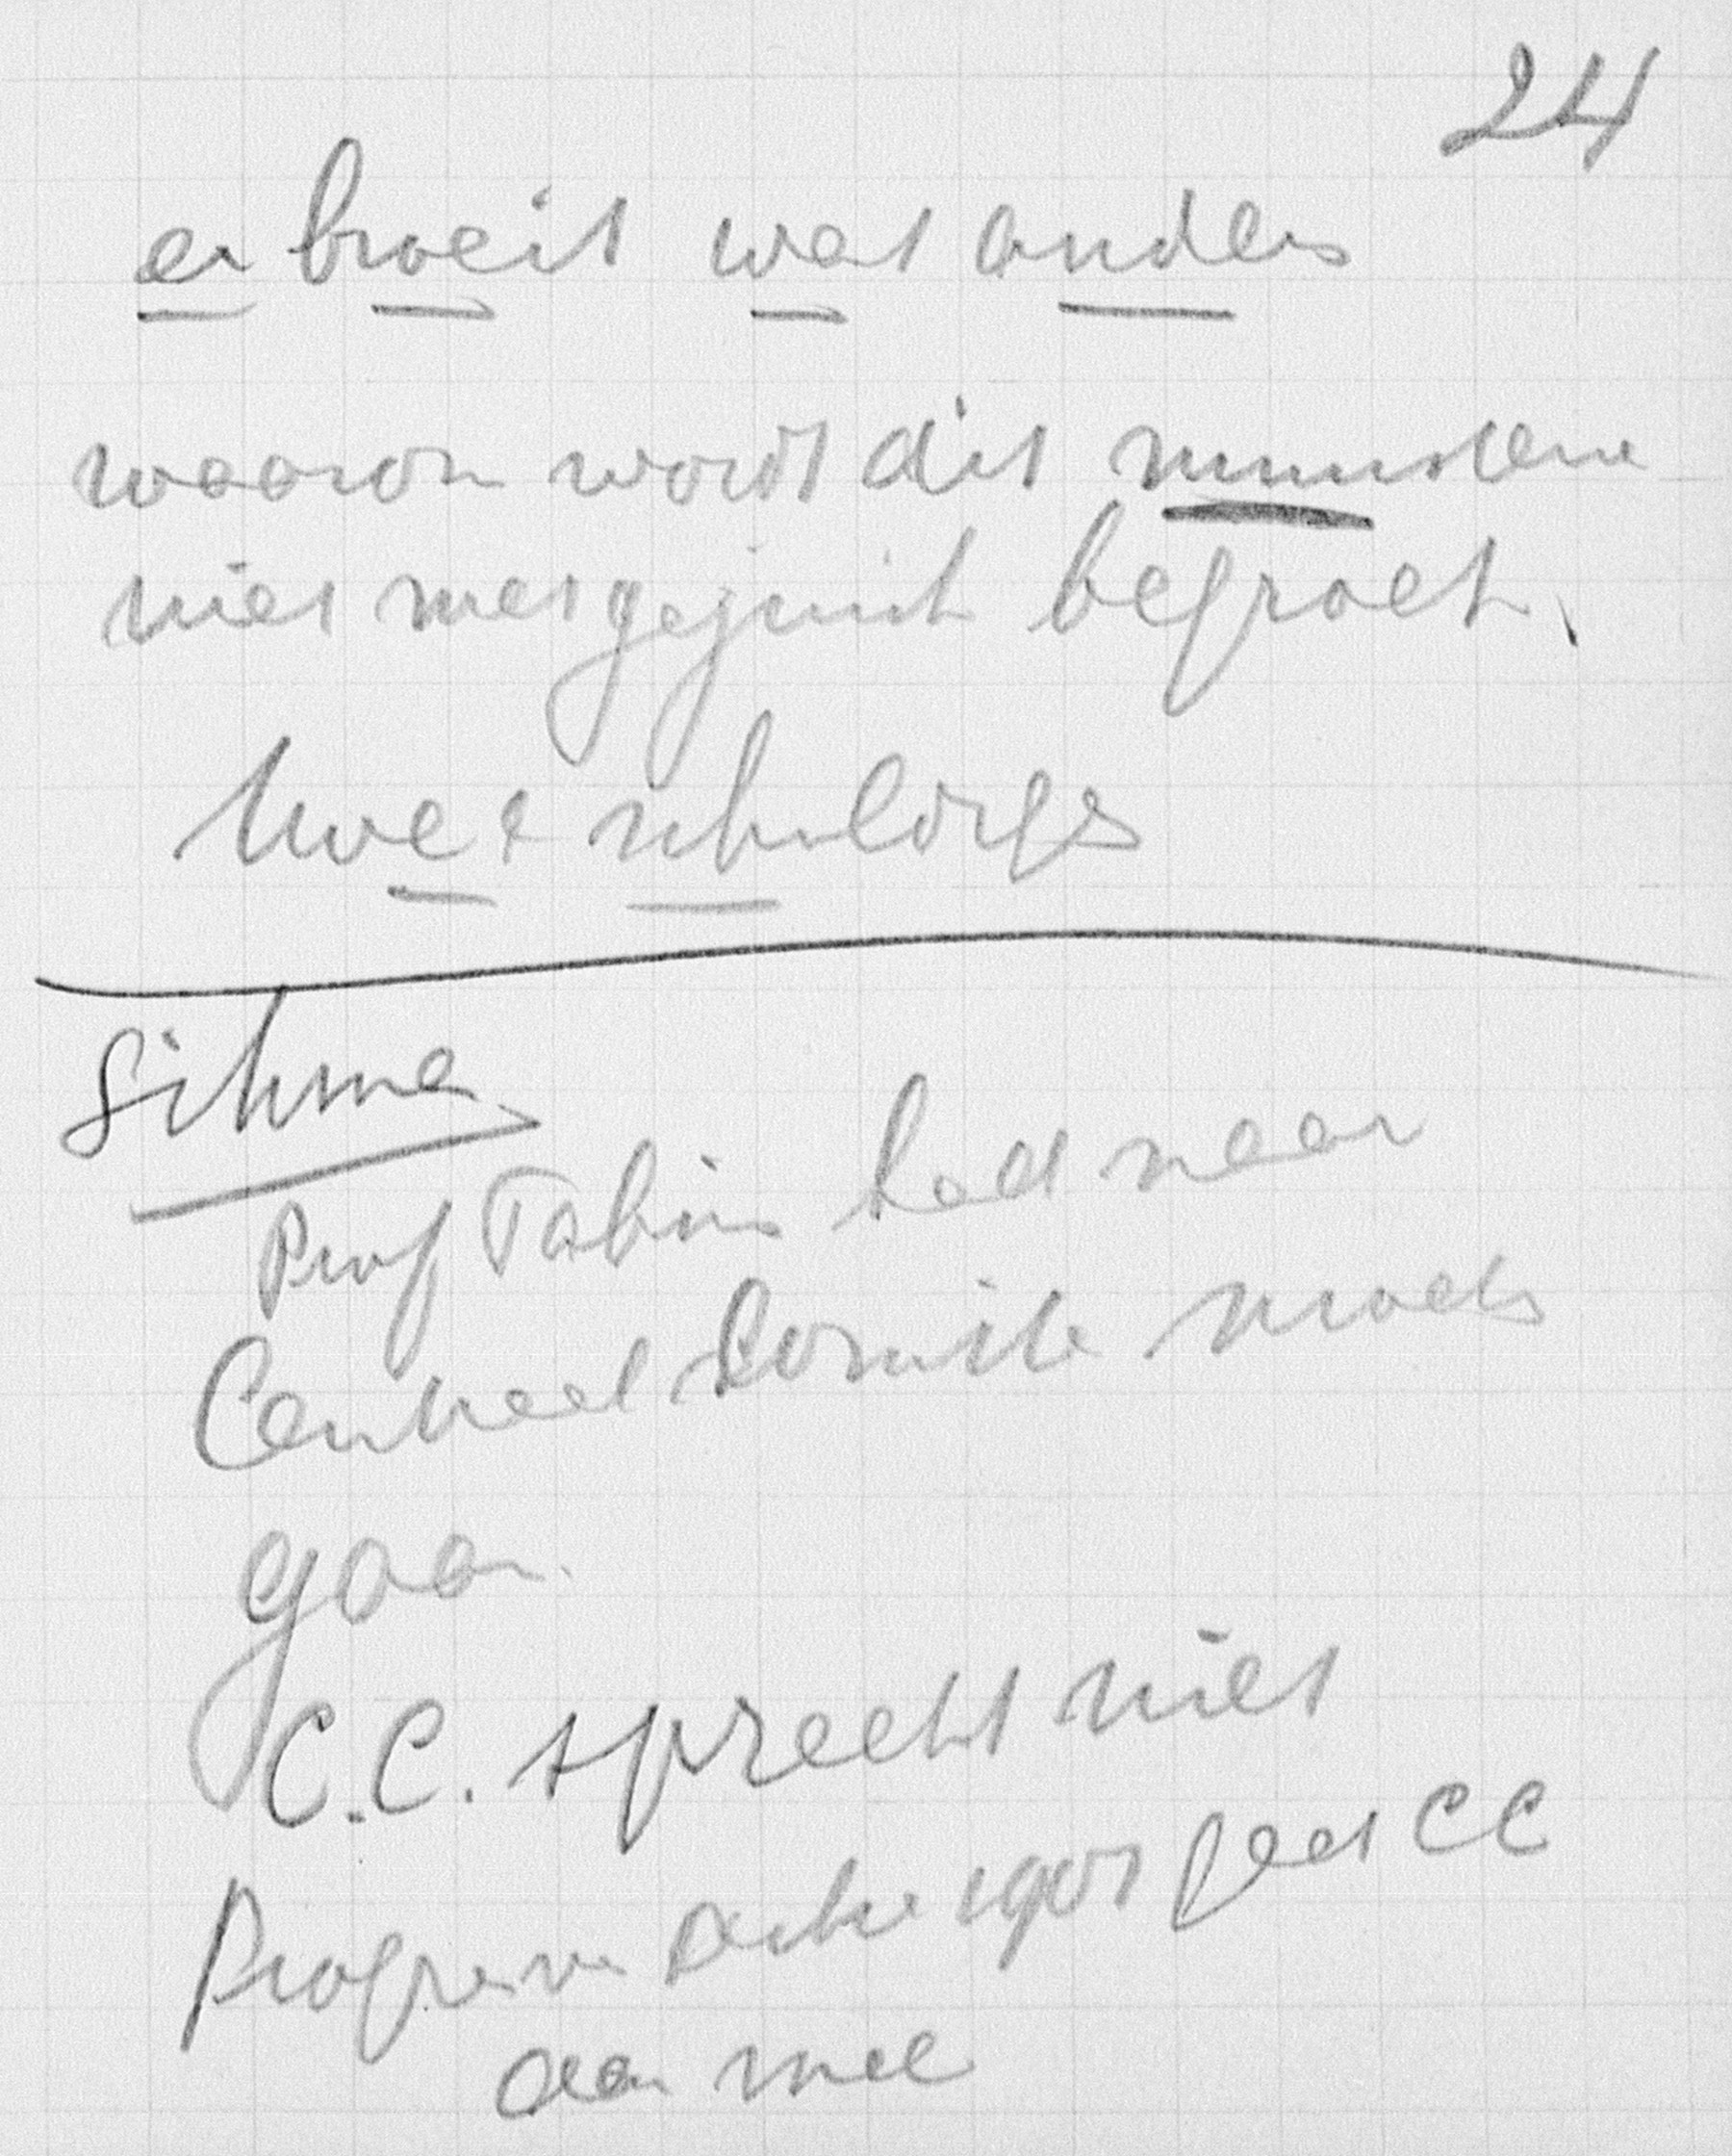 24
er broeit wat anders
waarom wordt dit ministerie
niet met gejuich begroet.
twee schuldigs
Sikma
Prof Tobin had naar
Centraal Comite moeten
gaan.
C.C. spreekt niet
Progr actie 1901 CC
aan mee